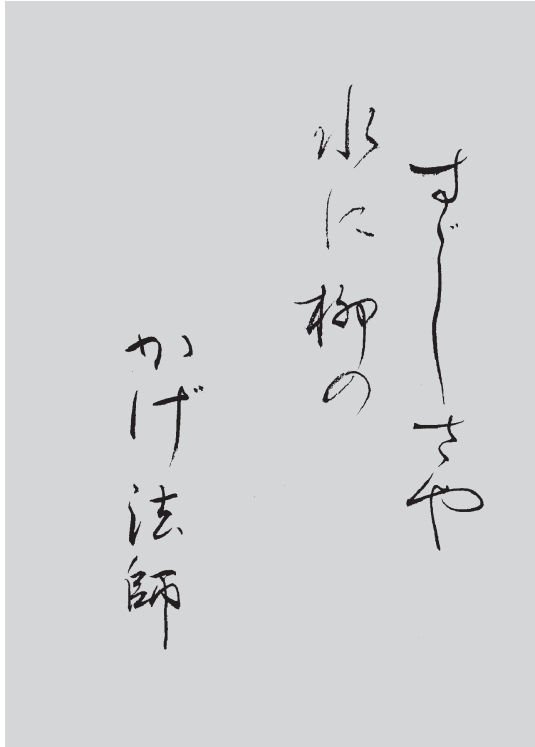 すゞしさや
水に柳の
かげ法師